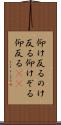 仰け反るのけ
反る仰けぞる
仰反る